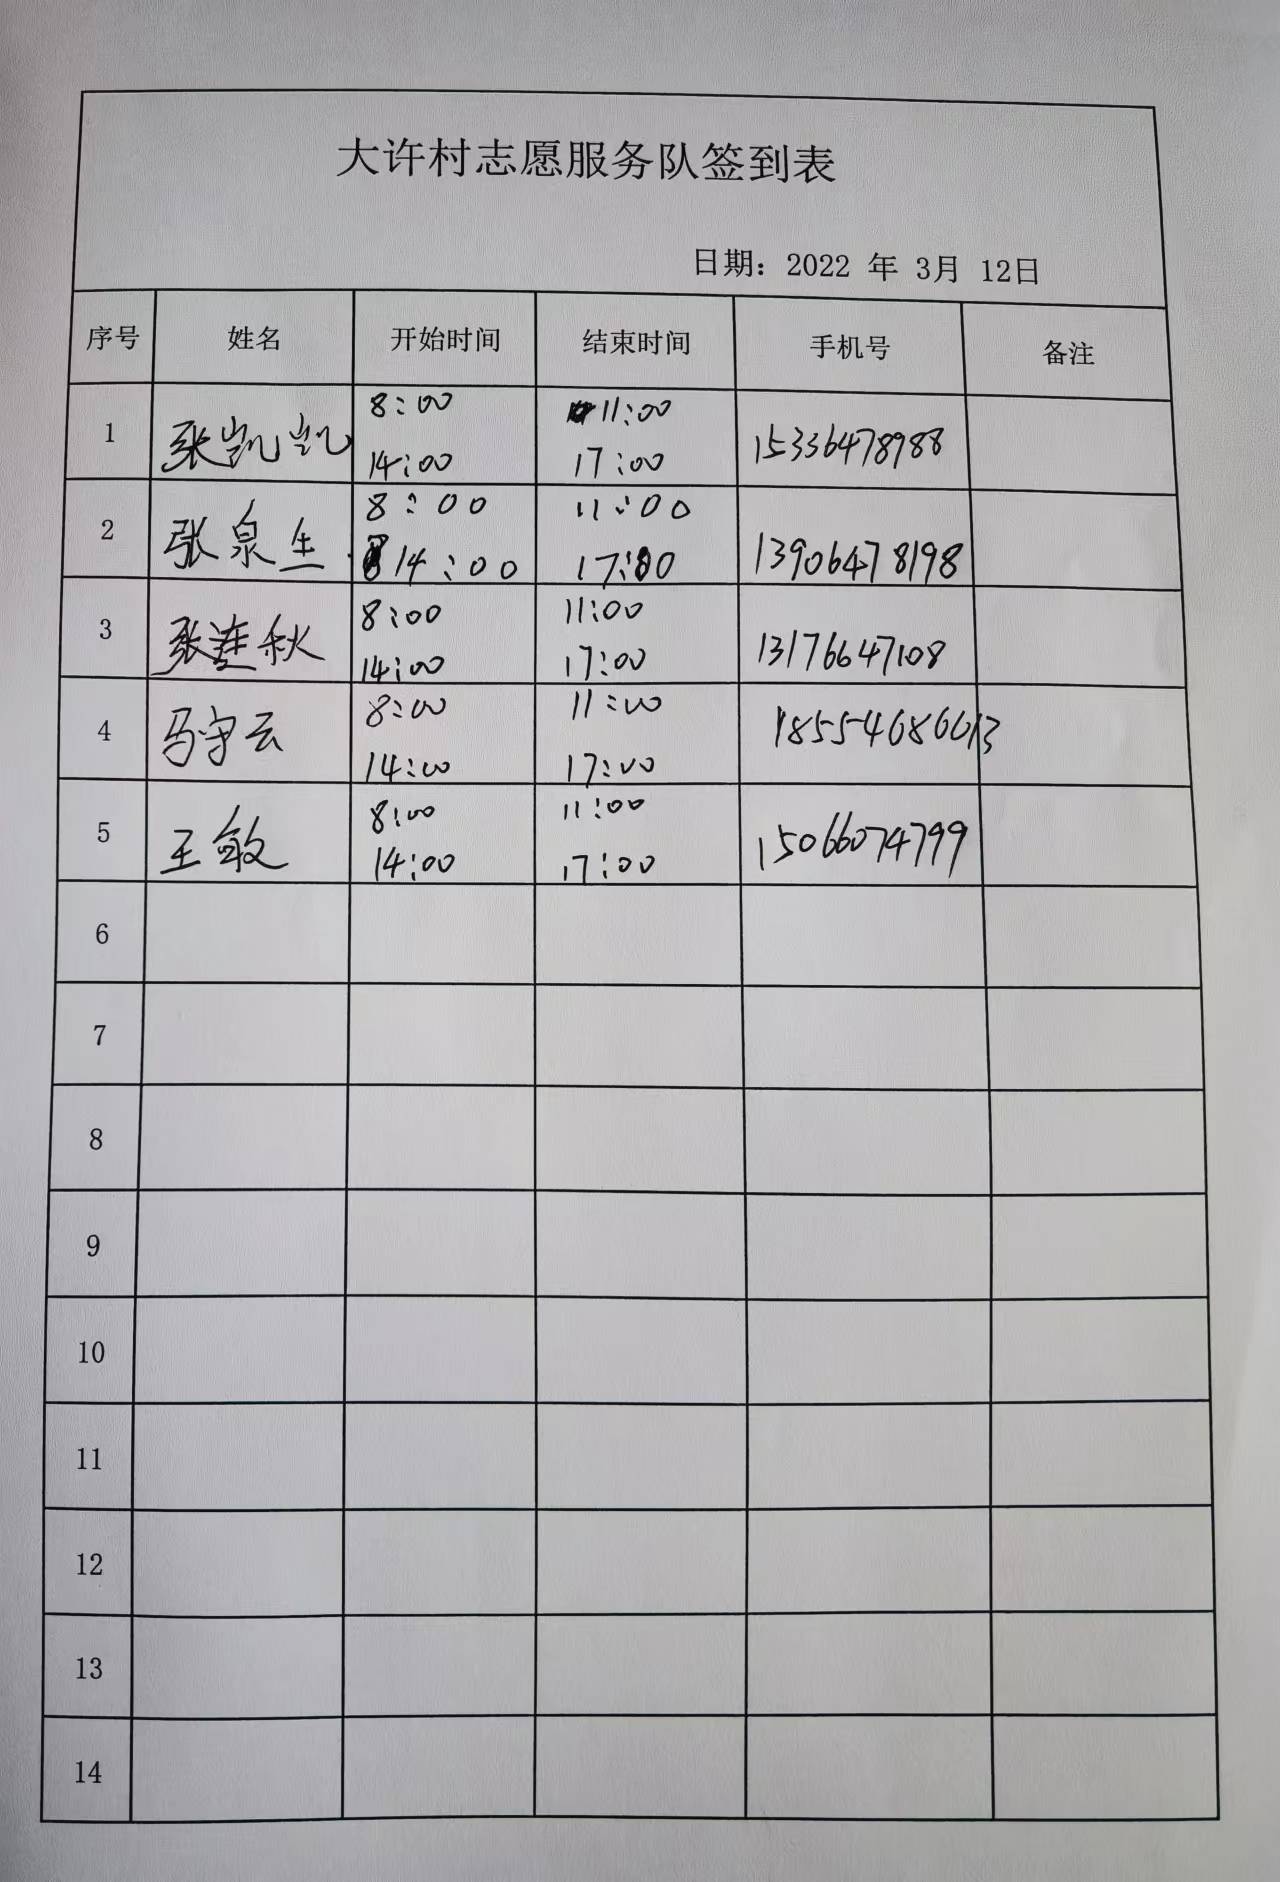 大许村志愿服务队签到表
日期：2022 年 3月 12日
序号 姓名 开始时间 结束时间 手机号 备注
1 张凯凯 8:00 11:00 15336478988
14:00 17:00
2 张泉生 8:00 11:00 13906478198
14:00 17:00
3 张莲秋 8:00 11:00 13176647108
14:00 17:00
4 马守云 8:00 11:00 18554686613
14:00 17:00
5 王敏 8:00 11:00 15066074799
14:00 17:00
6
7
8
9
10
11
12
13
14